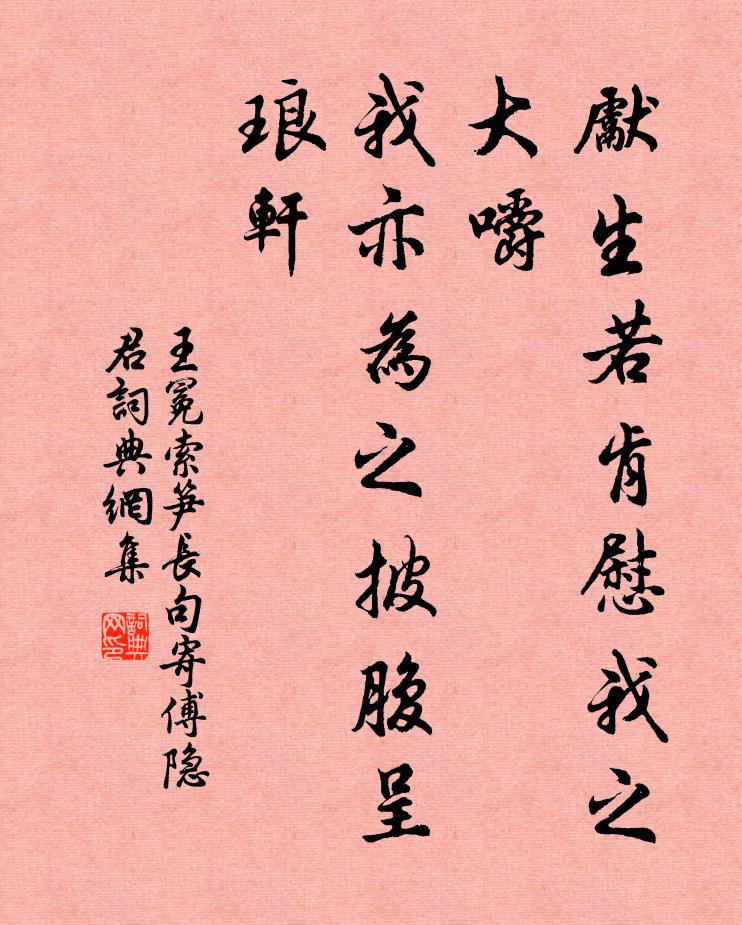 獻生若肯慰我之
大嚼
我亦為之披腹呈
琅軒
王冕索笋長句寄傅隐
君詞典網集
詞典
网印